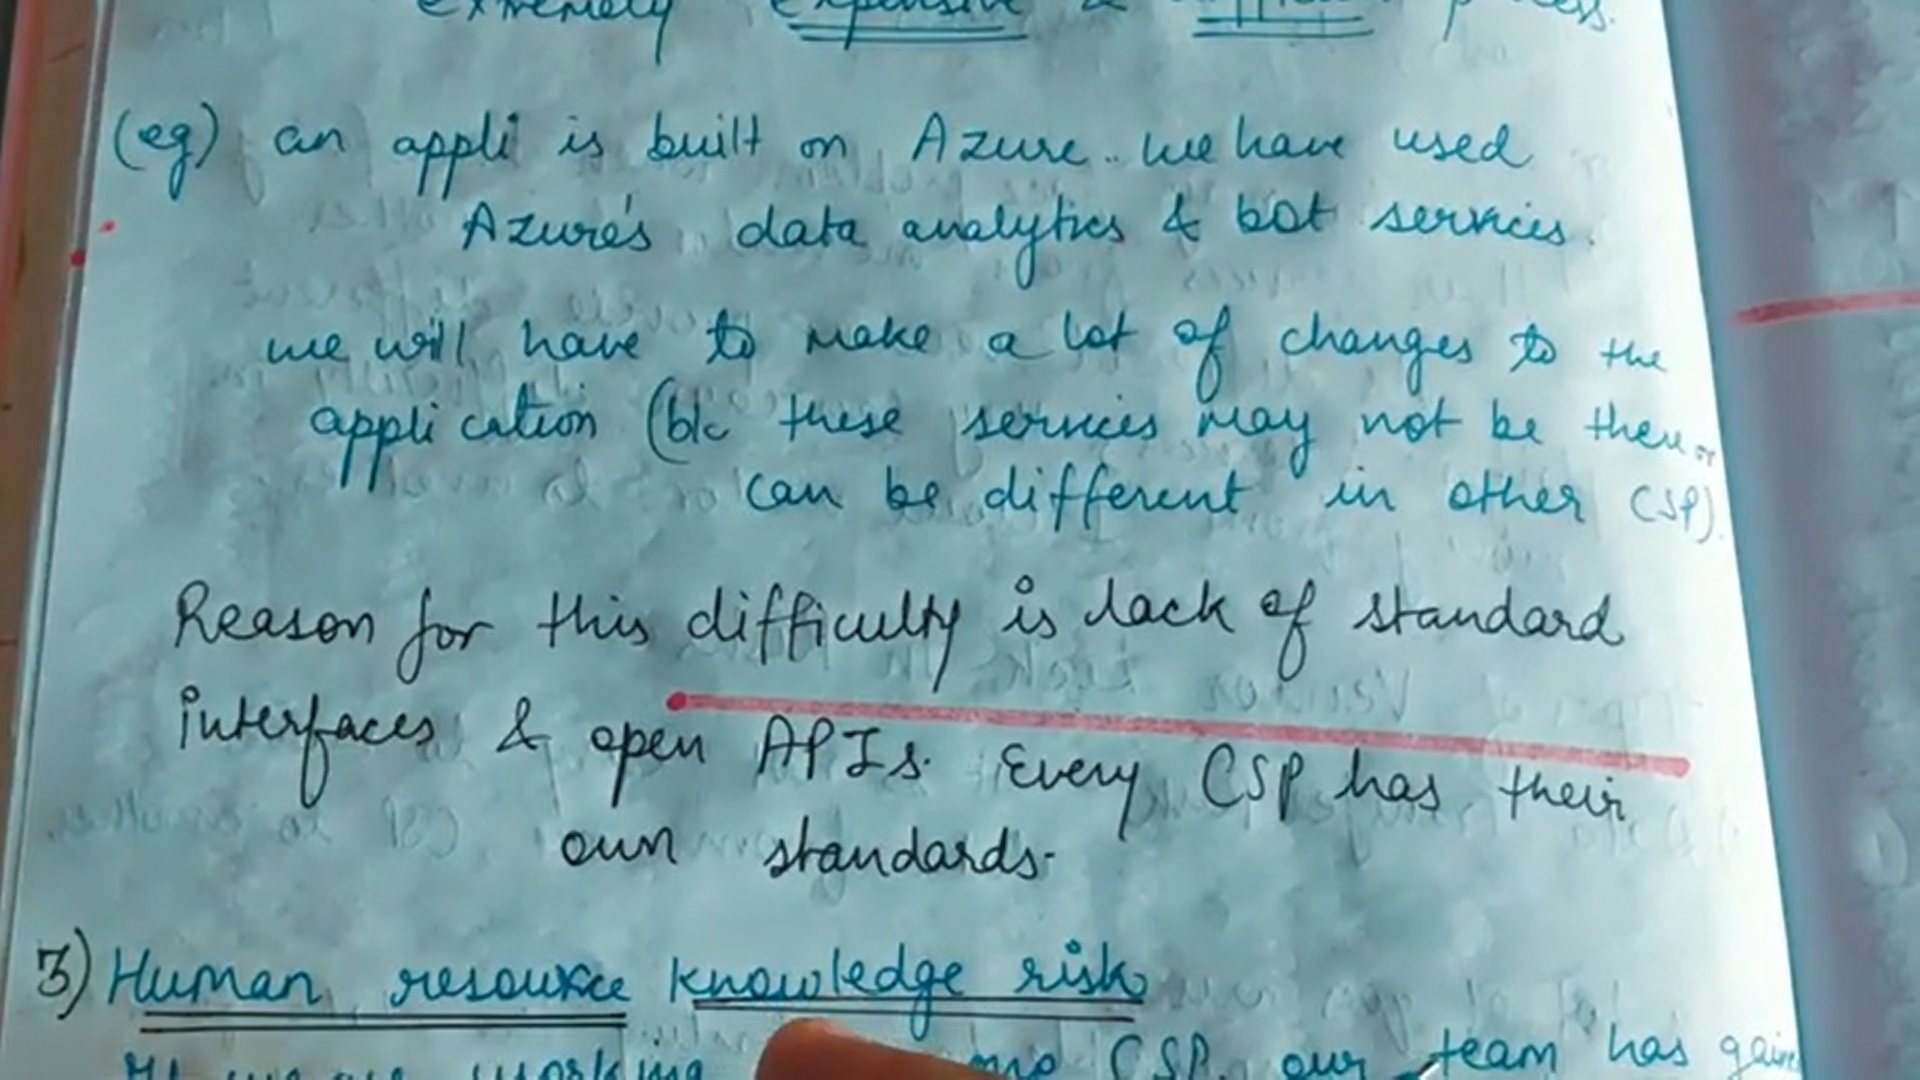 extremely expensive & process.
(eg) an appli is built on Azure. we have used
Azure's data analytics & bot services.
we will have to make a lot of changes to the
application (b/c these services may not be there or
can be different in other CSP).
Reason for this difficulty is lack of standard
interfaces & open APIs. Every CSP has their
own standards.
3) Human resource knowledge risk
If we are working CSP, our team has